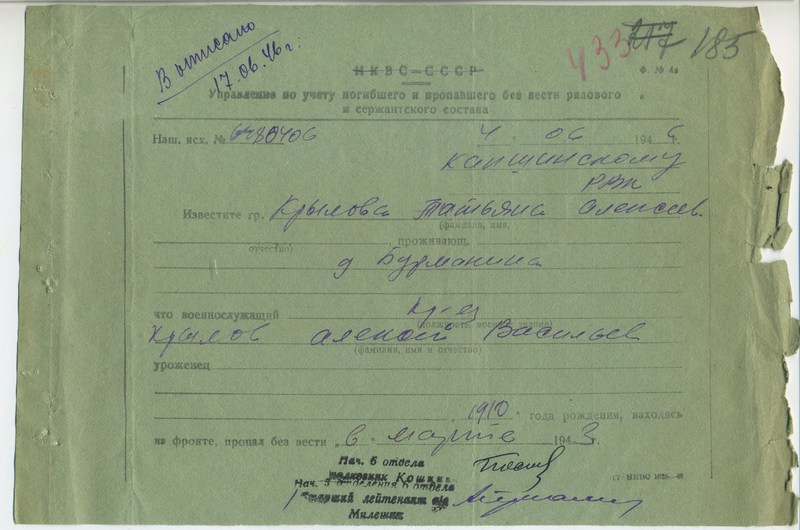 В описано
17.06.46 г.
433 217 185
МКВС-СССР
Ф. № 4а
Управление по учету погибшего и пропавшего без вести рядового
и сержантского состава
Наш. исх. № 4. 06 1946 г.
Капшинскому
РВК
Известите гр. Крылова Татьяна Алексеев.
(фамилия, имя,
отчество) проживающ.
д Бурмакина
что военнослужащий кр-ец
(должность, военное звание)
Крылов Алексей Васильев
(фамилия, имя и отчество)
уроженец
1910 года рождения, находясь
на фронте, пропал без вести в марте 1943 г.
Нач. 6 отдела
полковник Кошкин
Нач. 5 отделения 6 отдела
Старший лейтенант а/с